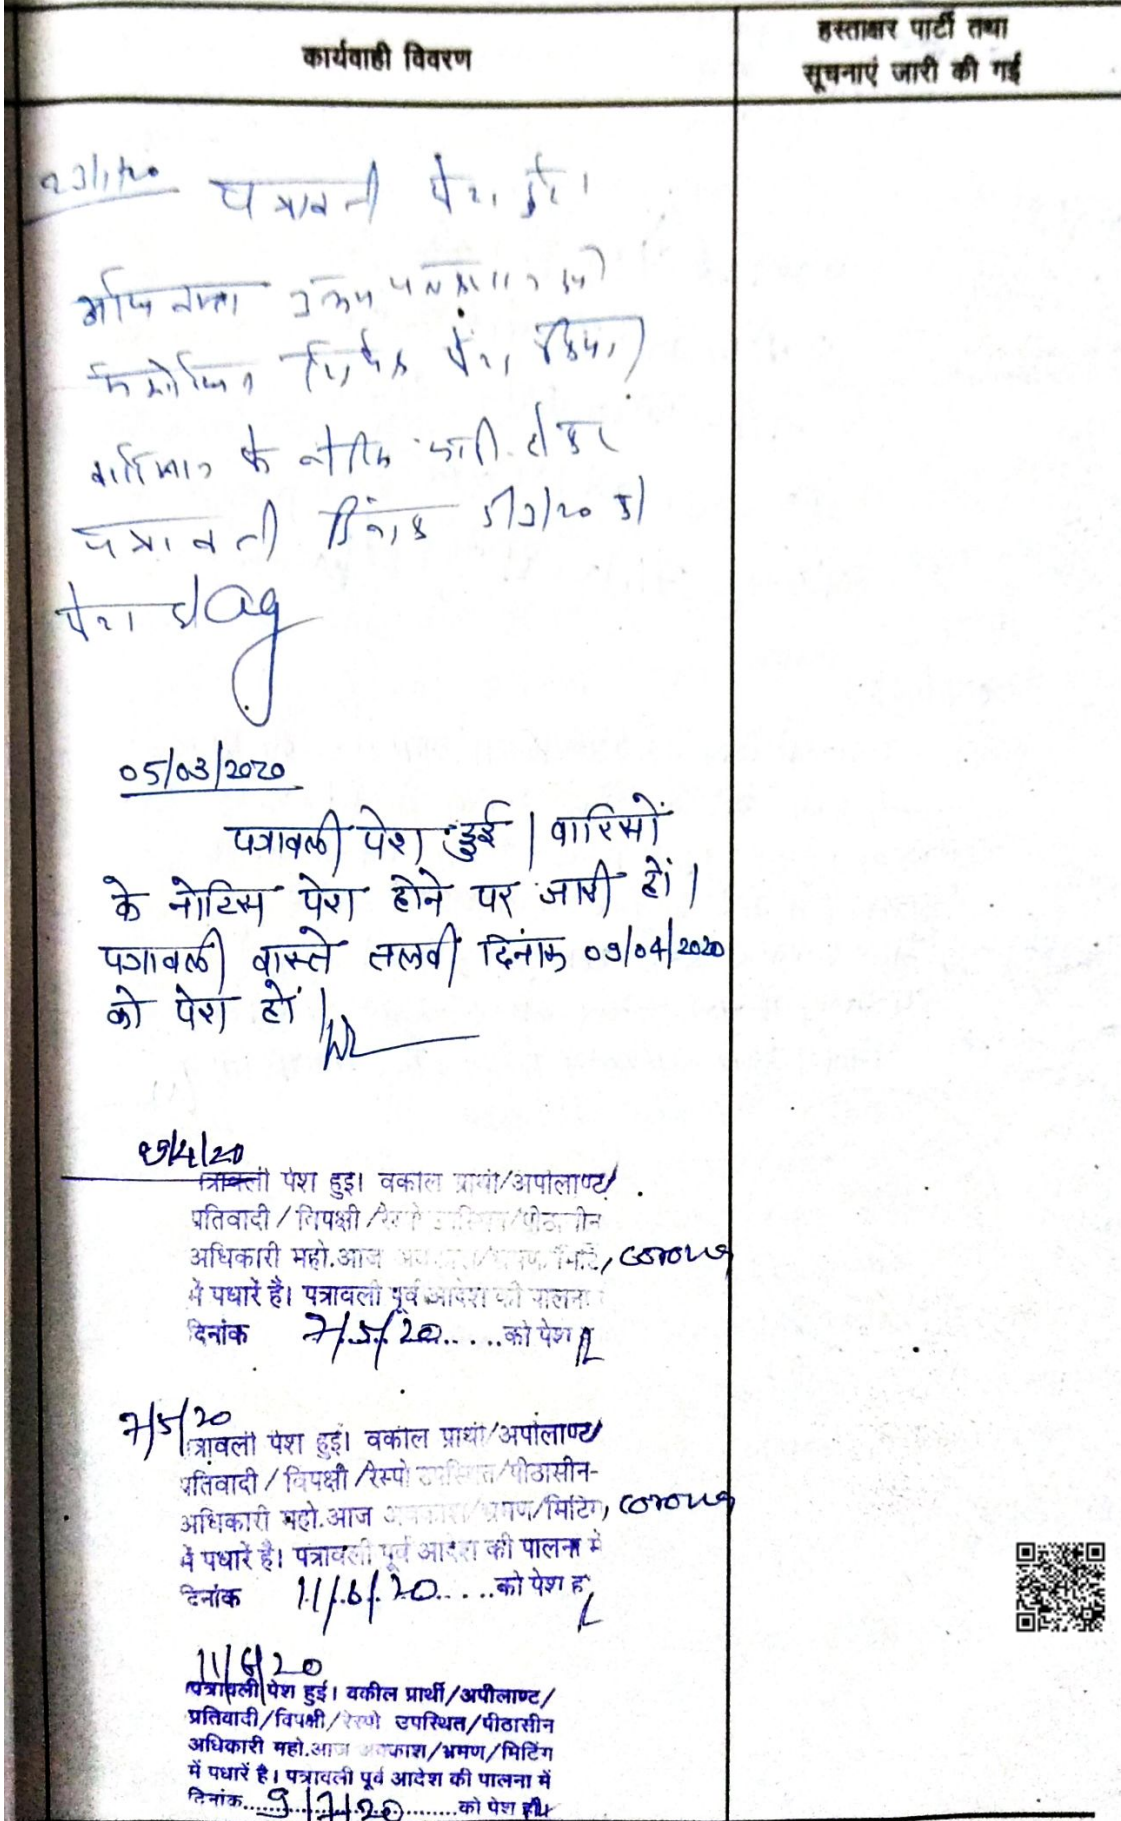 कार्यवाही विवरण
हस्ताक्षर पार्टी तथा
सूचनाएं जारी की गई
23/1/20 पत्रावली पेश हुई।
पेश किया।
के नोटिस जारी होकर
पत्रावली दिनांक 5/3/20 को
पेश हो
05/03/2020
पत्रावली पेश हुई। वारिसों
के नोटिस पेश होने पर जारी हों।
पत्रावली वास्ते तलवी दिनांक 09/04/2020
को पेश हों।
9/4/20
त्रावली पेश हुई। वकील प्रार्थी/अपीलाण्ट/
प्रतिवादी/विपक्षी/रेस्पो /पीठासीन
अधिकारी महो.आज मिटिं, corona
में पधारें है। पत्रावली पूर्व आदेश की पालना
दिनांक 7/5/20......को पेश
7/5/20
त्रावली पेश हुई। वकील प्रार्थी/अपीलाण्ट/
प्रतिवादी/विपक्षी/रेस्पो उपस्थित/पीठासीन-
अधिकारी महो.आज अवकाश/भ्रमण/मिटिंग, corona
में पधारें है। पत्रावली पूर्व आदेश की पालना में
दिनांक 11/6/20......को पेश ह
11/6/20
पत्रावली पेश हुई। वकील प्रार्थी/अपीलाण्ट/
प्रतिवादी/विपक्षी/रेस्पो उपस्थित/पीठासीन
अधिकारी महो.आज अवकाश/भ्रमण/मिटिंग
में पधारें है। पत्रावली पूर्व आदेश की पालना में
दिनांक......9/7/20.........को पेश हो।